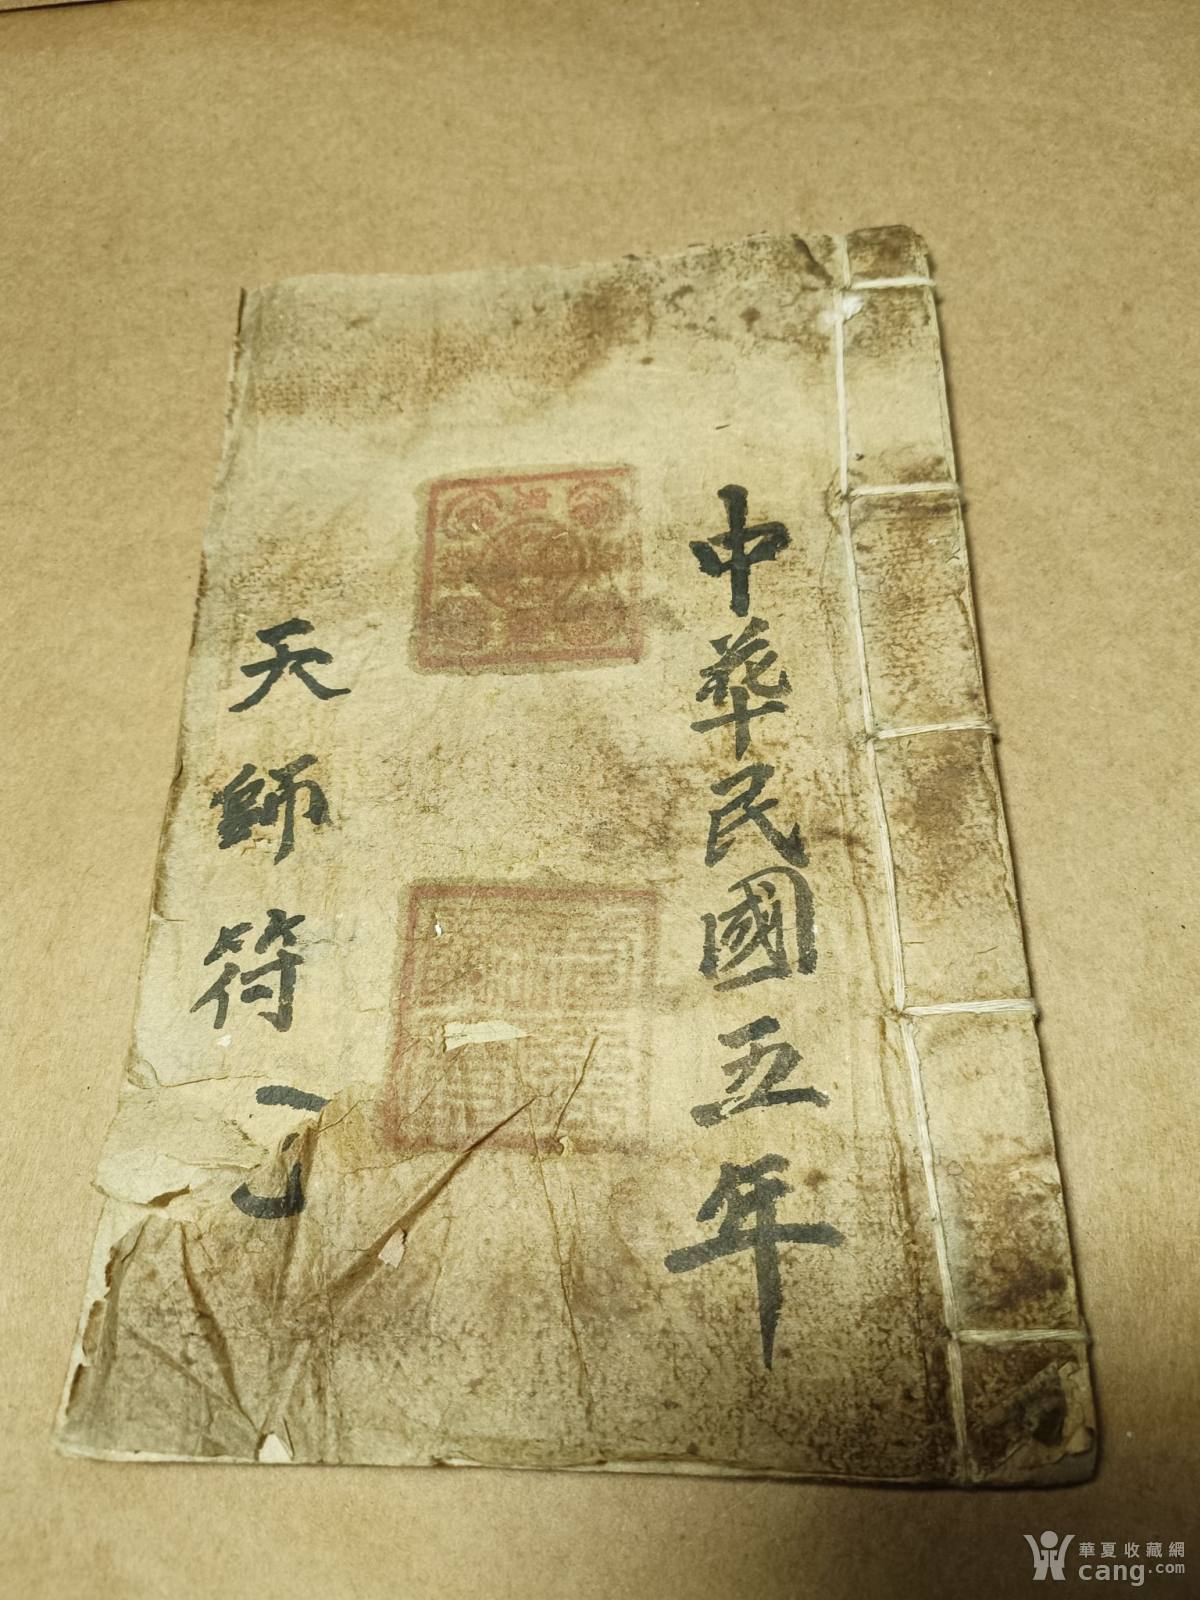 中華民國五年
天師符
華夏收藏網
cang.com